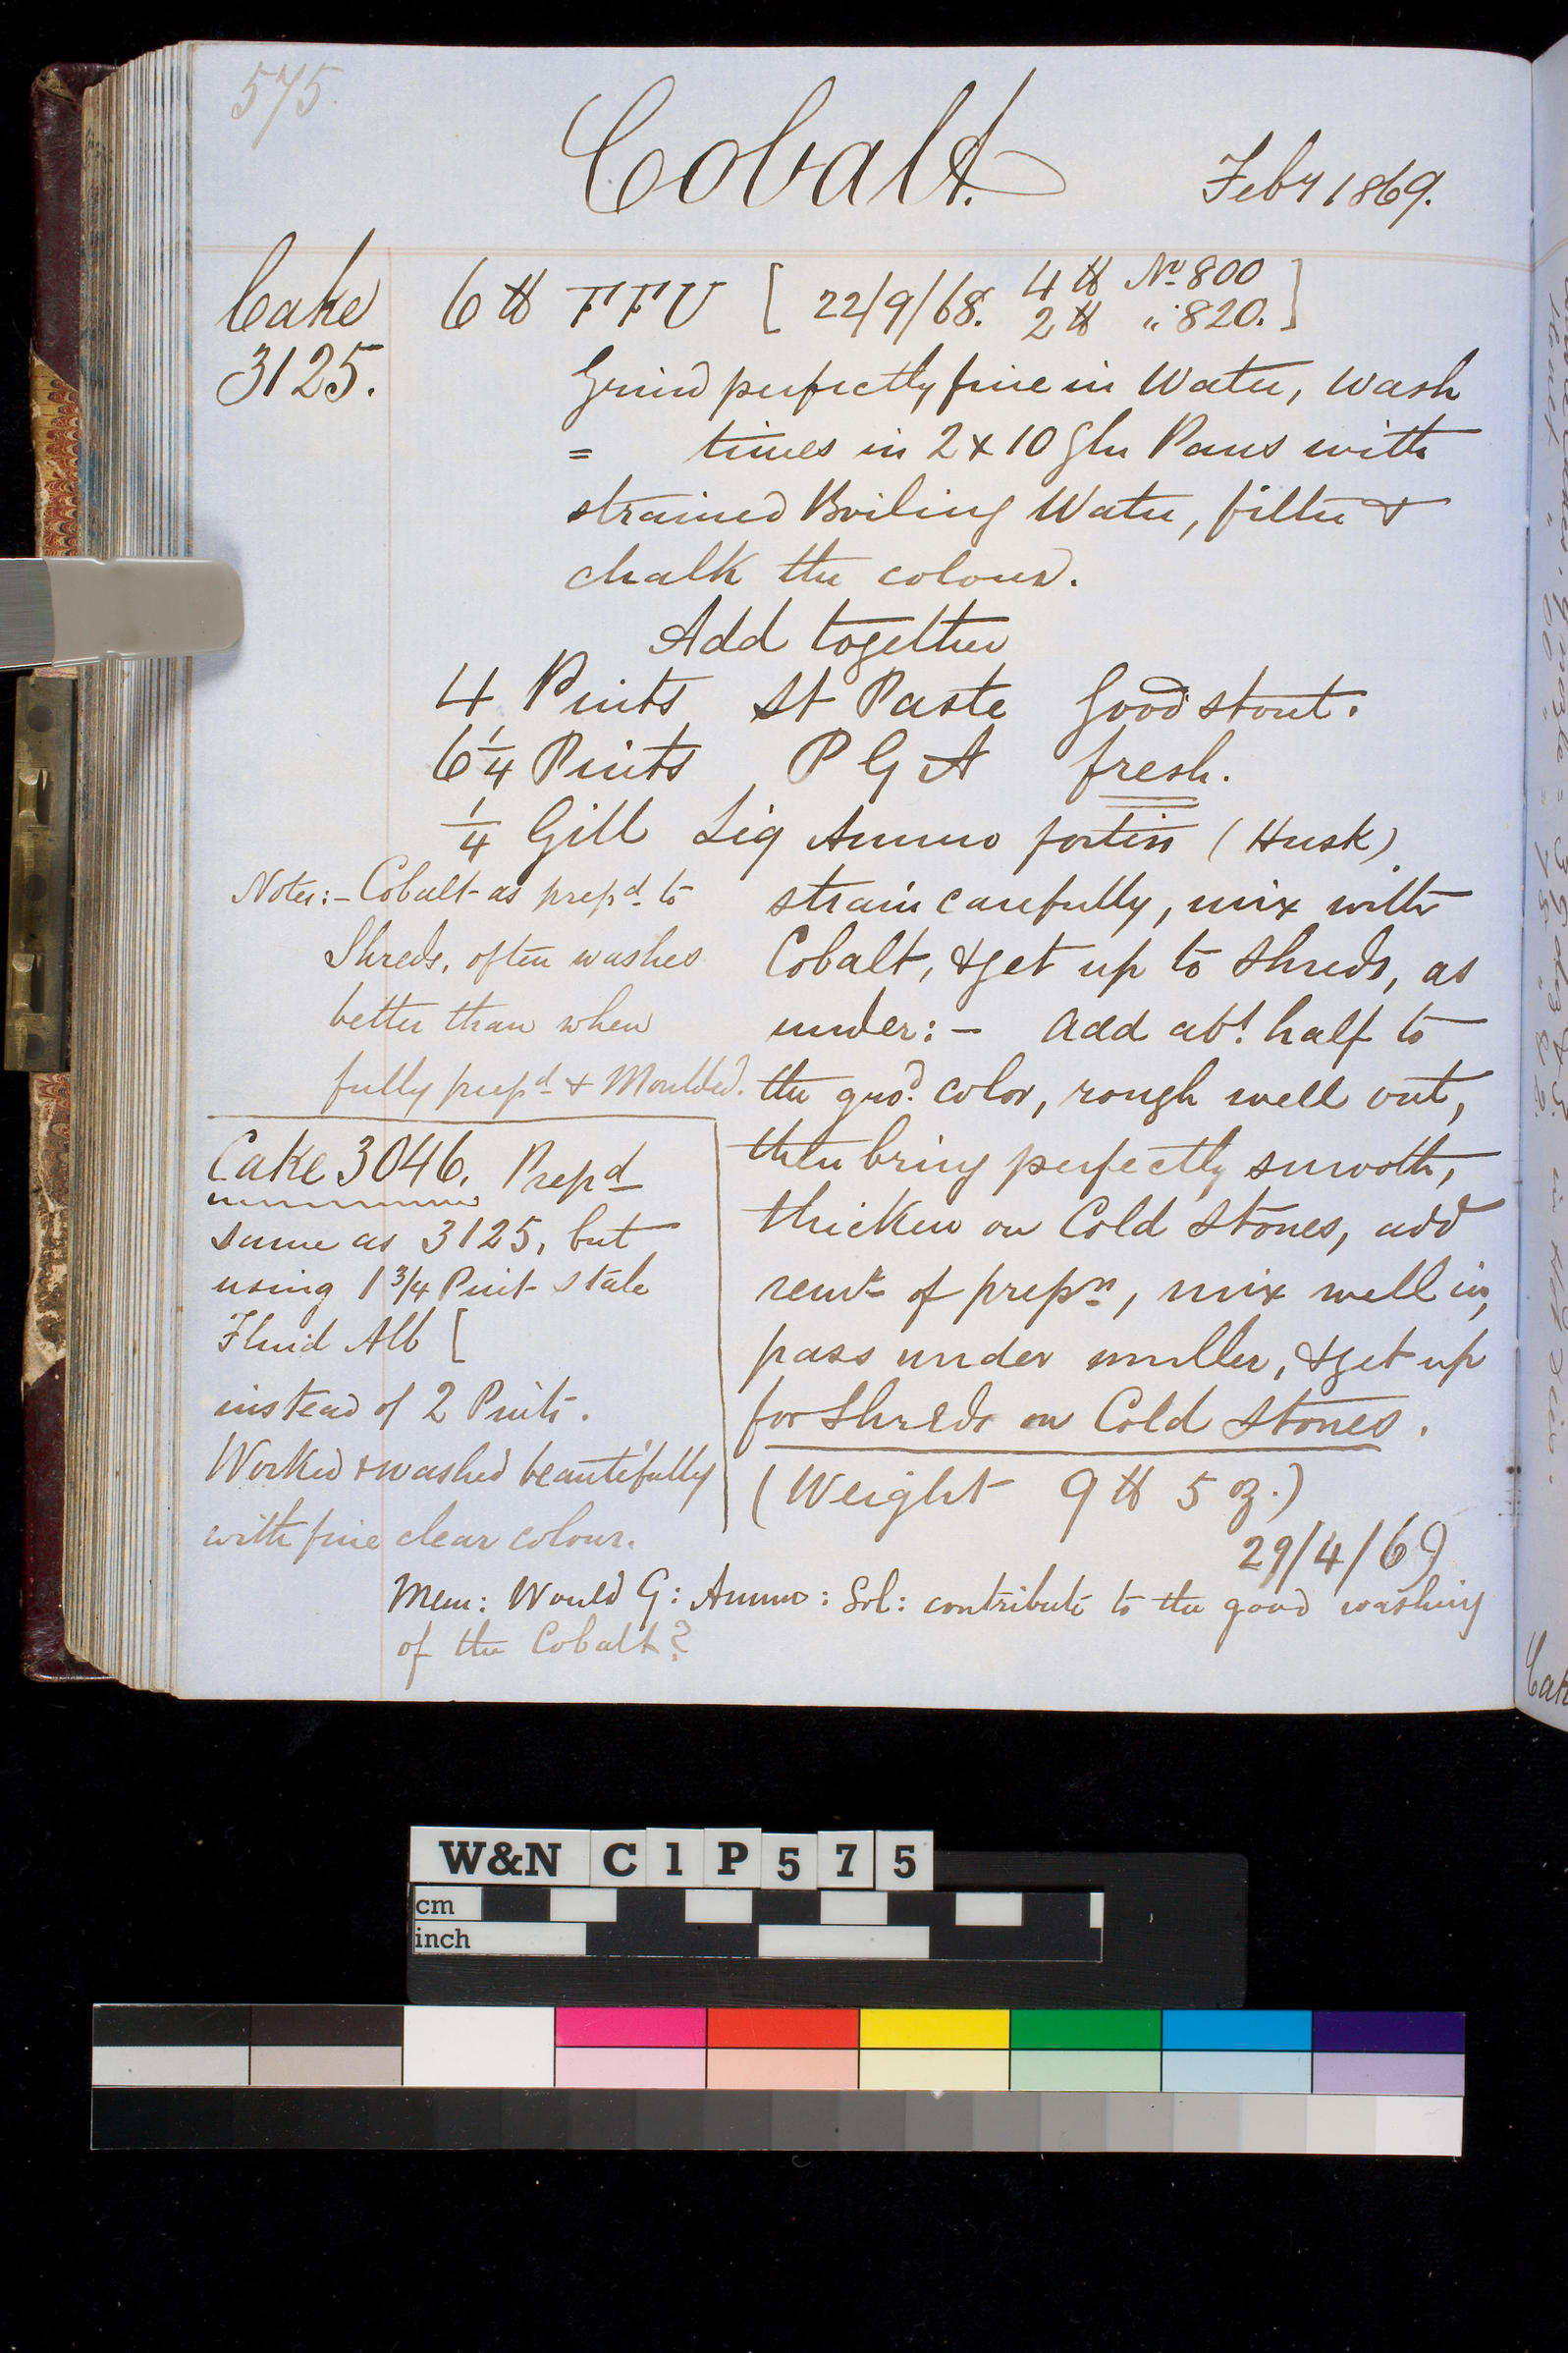 575
Cobalt.
Feby 1869.
Cake
3125.
6 ℔ FFU [22/9/68. 4 ℔ No 800
2 ℔ " 820.]
Grind perfectly fine in Water, wash
= times in 2 x 10 Gln Pans with
strained Boiling Water, filter &
chalk the colour.
Add together
4 Pints St Paste Good stout.
6 1/4 Pints P G A fresh.
1/4 Gill Liq Ammo fortis (Husk)
strain carefully, mix with
Cobalt, & get up to shreds, as
under:- Add abt. half to
the grd. color, rough well out,
then bring perfectly smooth,
thicken on Cold Stones, add
remr of prepn, mix well in,
pass under muller, & get up
for Shreds on Cold Stones.
(Weight 9 ℔ 5 oz.)
29/4/69
Notes:- Cobalt as prepd. to
Shreds, often washes
better than when
fully prepd & Moulded.
Cake 3046. Prepd
same as 3125, but
using 1 3/4 Pint stale
Fluid Alb [
instead of 2 Pints.
Worked & washed beautifully
with fine clear colour.
Mem: Would G: Ammo: Sol: contribute to the good washing
of the Cobalt?
Cak
W&N C1P575
cm
inch